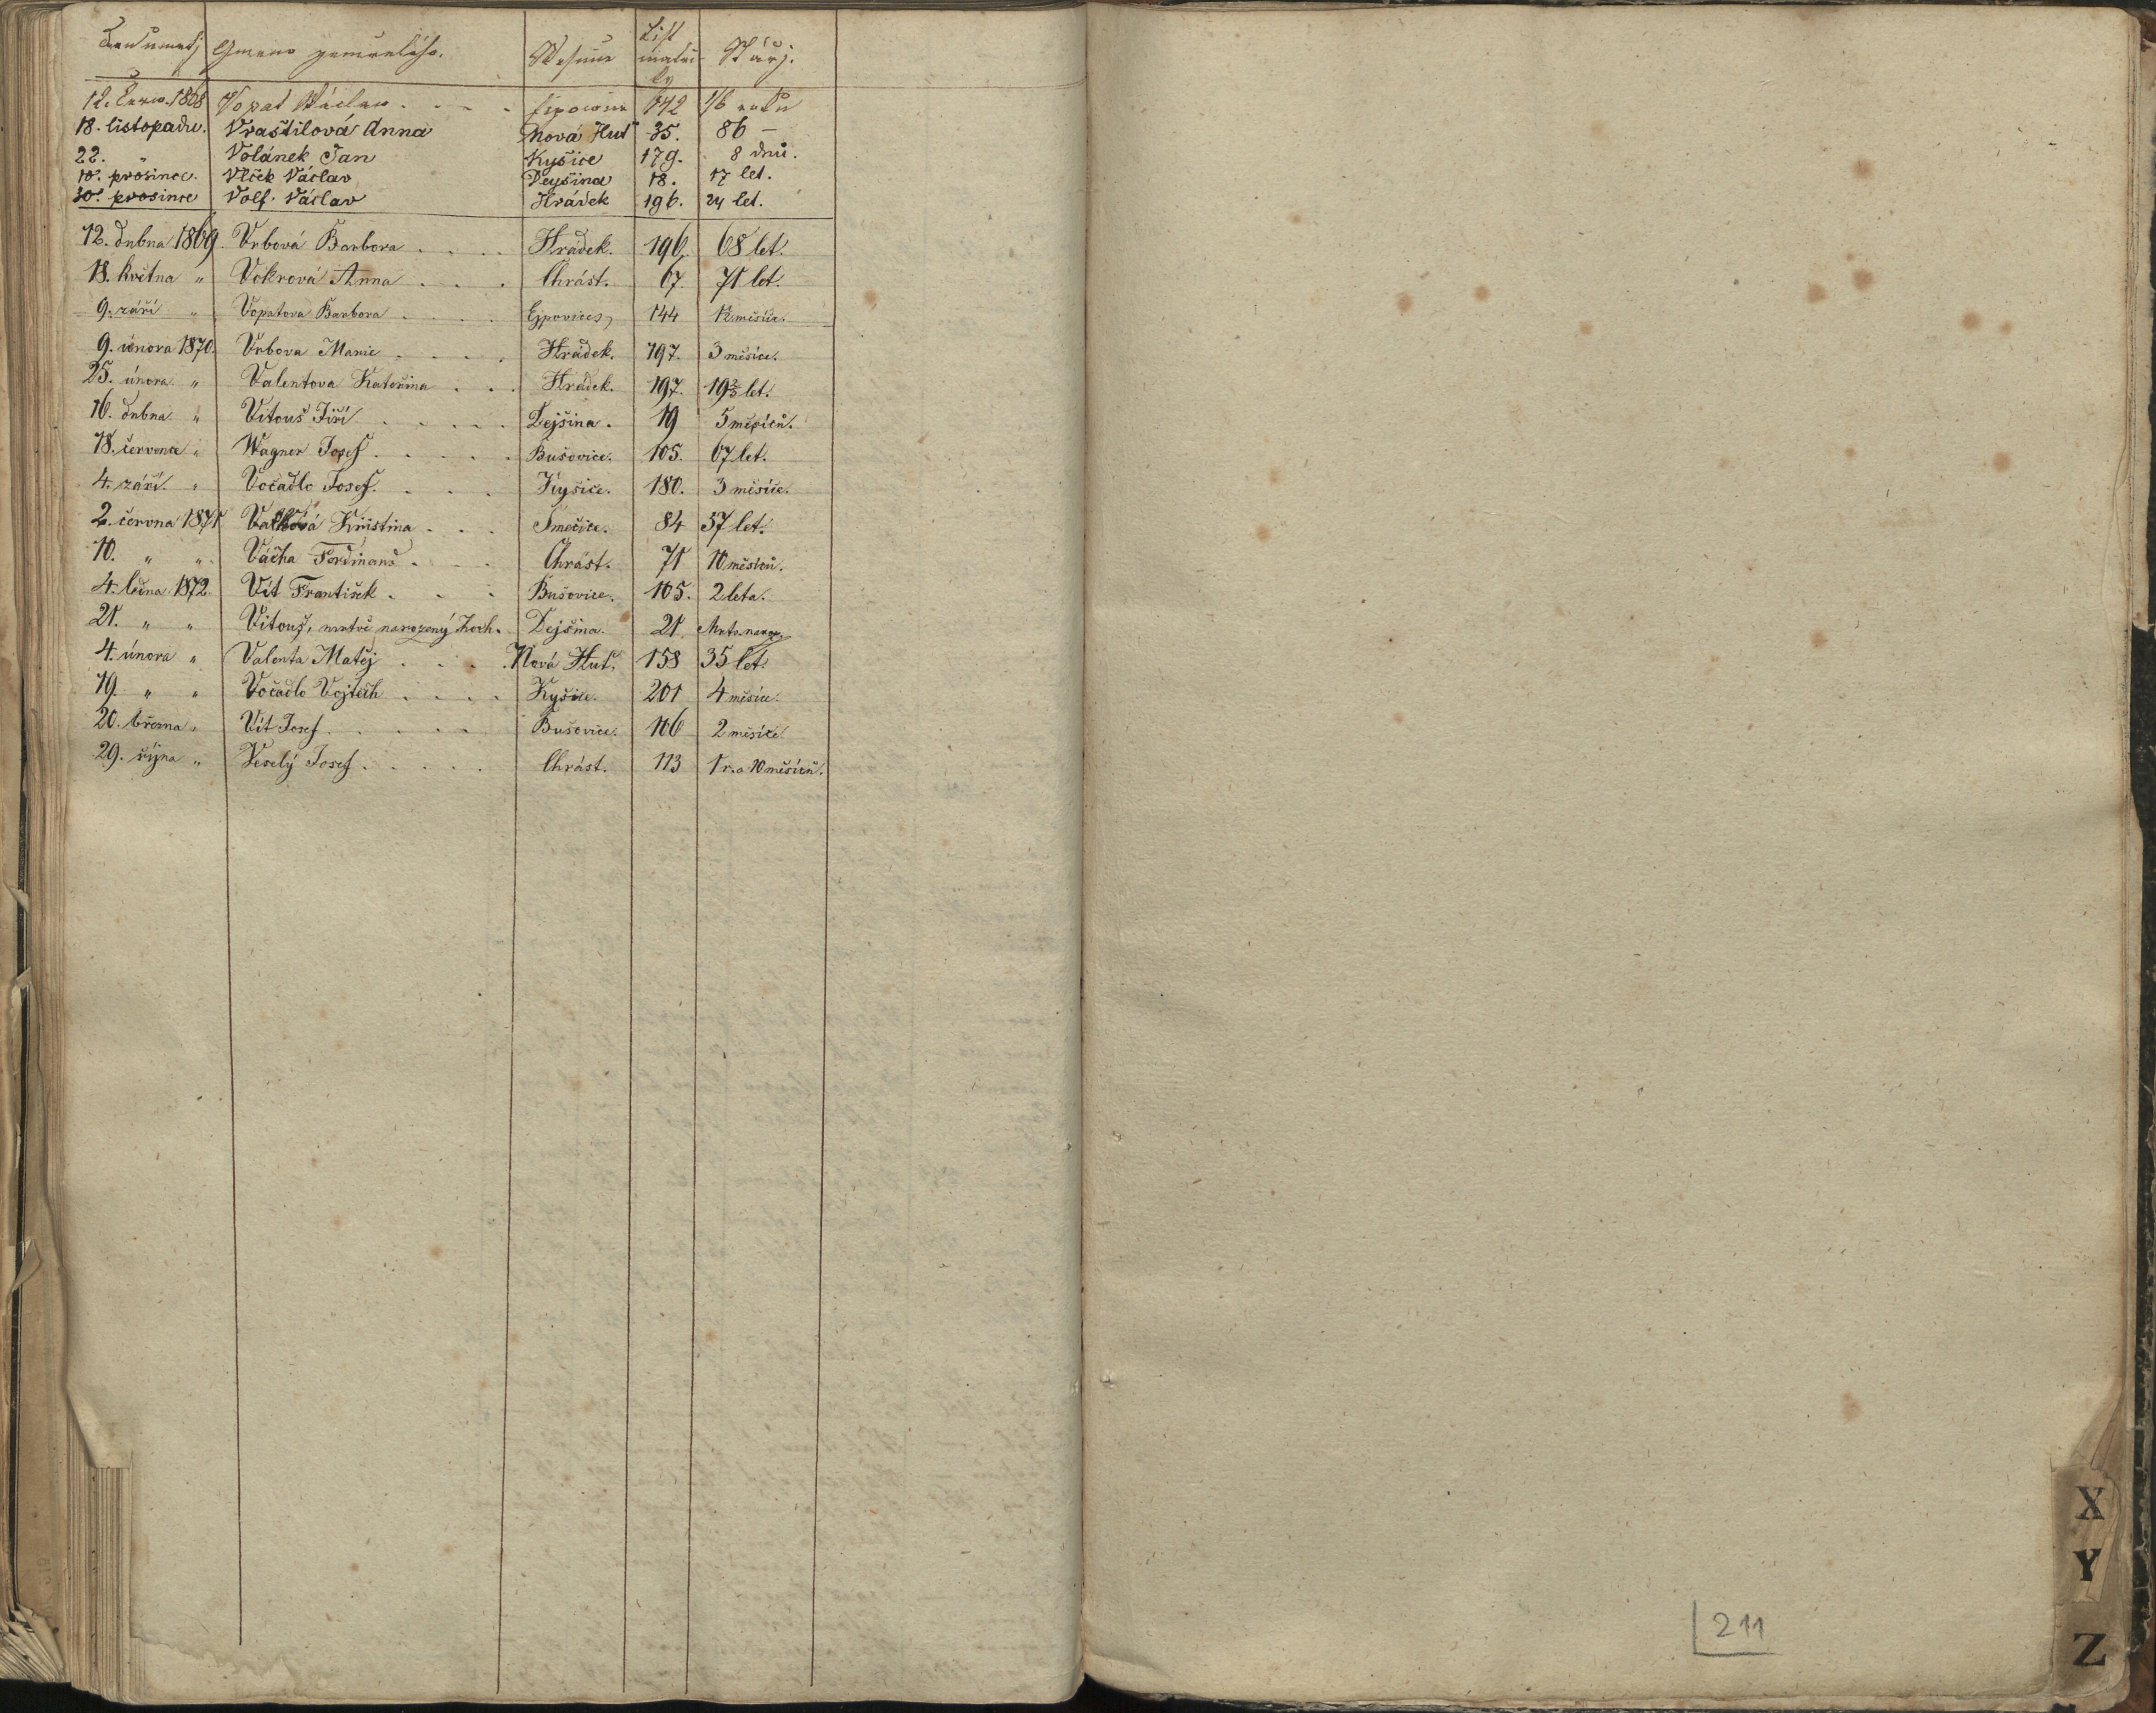 Den úmrtj Gmeno zemřelého. Wesnice List matriky Stářj.
12. Červ. 1868 Vopat Václav . . . . Eipowice 142 1/6 roku
18. listopadu. Vraštilová Anna Nová Huť 35. 86 –
22. " Volánek Jan Kyšice 179. 8 dnů.
10. prosince. Vlček Václav Deyšina 18. 17 let.
30. prosince Volf. Václav Hrádek 196. 24 let.
12. dubna 1869. Vrbová Barbora . . . . Hrádek. 196. 68 let.
18. května " Vokrová Anna . . . . Chrást. 67 71 let.
9. září " Vopatova Barbora . . . . Ejpovices, 144 1½ měsíce.
9. února 1870. Vrbova Marie . . . . Hrádek. 197. 3 měsíce.
25. února " Valentova Kateřina . . . Hrádek. 197. 19 2/3 let.
16. dubna " Vitouš Jiří . . . . . Dejšina. 19 5 měsíců.
18. července " Wagner Josef . . . . . Bušovice. 105. 67 let.
4. září. " Vočadlo Josef. . . . . Kyšice. 180. 3 měsíce.
2. června 1871 Kristina . . . Smečice. 84 57 let.
10. " " Vácha Ferdinand . . . . Chrást. 71 10 měsíců.
4. ledna 1872. Vít František . . . Bušovice. 105. 2 leta.
21. " " Vitouš, mrtvě narozený hoch. Dejšina. 21. Mrtv. naroz.
4. února " Valenta Matěj . . . . Nová Huť. 158 35 let.
19. " " Vočadlo Vojtěch . . . . Kyšice. 201 4 měsíce.
20. března " Vít Josef . . . . . Bušovice. 106 2 měsíce.
29. října " Veselý Josef . . . . . Chrást. 113 1 r. a 10 měsíců.
X
Y
Z
211